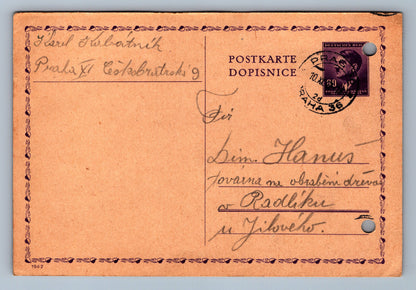 Karel Kubátník
Praha XI Českobratrská 9
POSTKARTE
DOPISNICE
DEUTSCHES REICH
10.XI
PRAHA 36
Fir
Sim. Hanuš
továrna na obrábění dřeva
v Radlíku
u Jilového.
1942